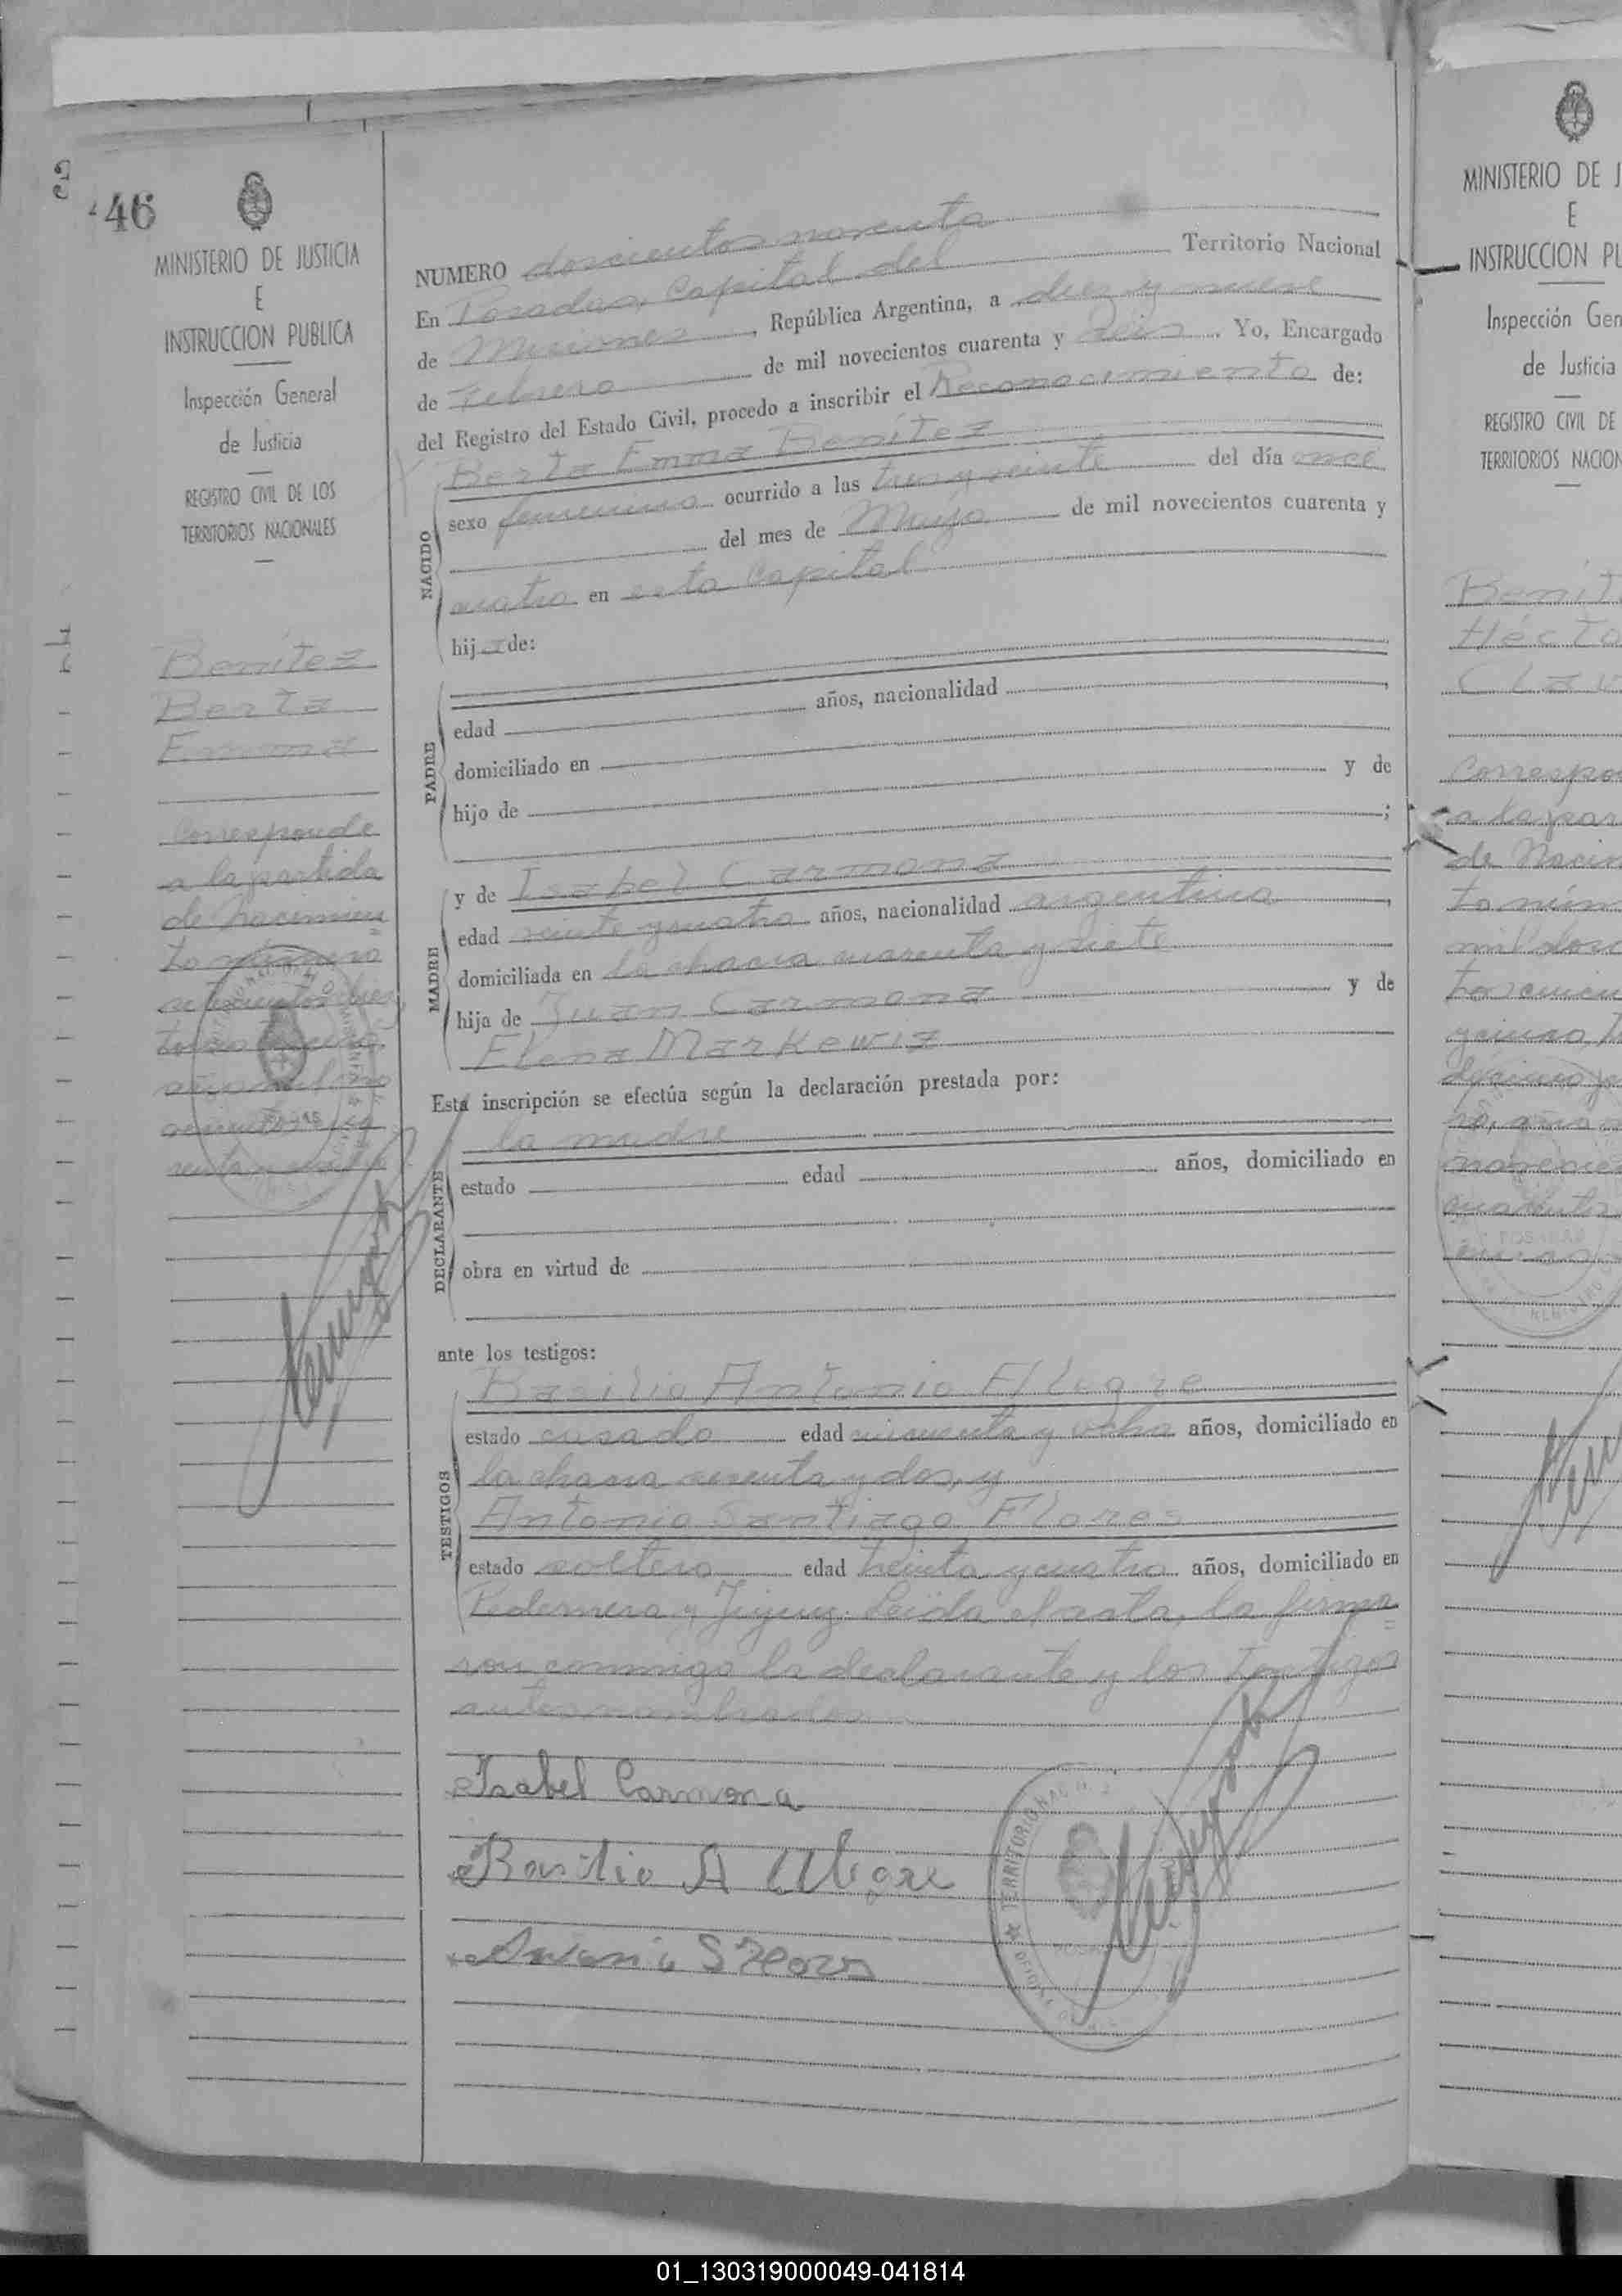 46
MINISTERIO DE JUSTICIA
E
INSTRUCCION PUBLICA
Inspección General
de Justicia
REGISTRO CIVIL DE LOS
TERRITORIOS NACIONALES
Benítez
Berta
Emma
Corresponde
a la partida
de Nacimien
to número
NUMERO doscientos noventa
En Posadas, Capital del Territorio Nacional
de Misiones, República Argentina, a diez y nueve
de Febrero de mil novecientos cuarenta y seis. Yo, Encargado
del Registro del Estado Civil, procedo a inscribir el Reconocimiento de:
Berta Emma Benítez
NACIDO
sexo femenino ocurrido a las tres y veinte del día once
del mes de Mayo de mil novecientos cuarenta y
cuatro en esta Capital
hija de:
PADRE
edad años, nacionalidad
domiciliado en
hijo de y de
;
MADRE
y de Isabel Carmona
edad veinte y cuatro años, nacionalidad argentina,
domiciliada en la chacra cuarenta y siete
hija de Juan Carmona y de
Elena Markewiz
Esta inscripción se efectúa según la declaración prestada por:
DECLARANTE
la madre
estado edad años, domiciliado en
obra en virtud de
ante los testigos:
TESTIGOS
Basilio Antonio Alegre
estado casado edad cincuenta y ocho años, domiciliado en
la chacra sesenta y dos, y
Antonio Santiago Flores
estado soltero edad treinta y cuatro años, domiciliado en
Pedernera y Jujuy. Leída el acta, la firma=
ron conmigo la declarante y los testigos
antes nombrados
Isabel Carmona
Basilio A Alegre
Antonio S Flores
TERRITORIO NAC
MINISTERIO DE J
E
INSTRUCCION PU
Inspección Gen
de Justicia
REGISTRO CIVIL DE
TERRITORIOS NACION
Benít
Hécto
Correspo
a la par
de Nacim
to núm
01_130319000049-041814